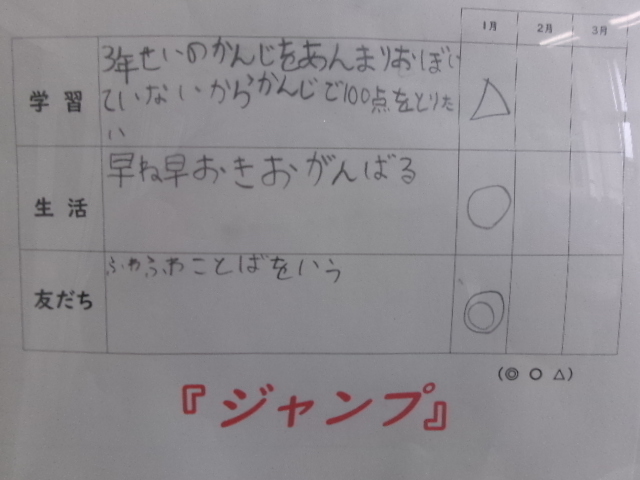 1月 2月 3月
学習
3年せいのかんじをあんまりおぼい
ていないからかんじで100点をとりた
い
△
生活
早ね早おきおがんばる
○
友だち
ふわふわことばをいう
◎
(◎ ○ △)
『ジャンプ』